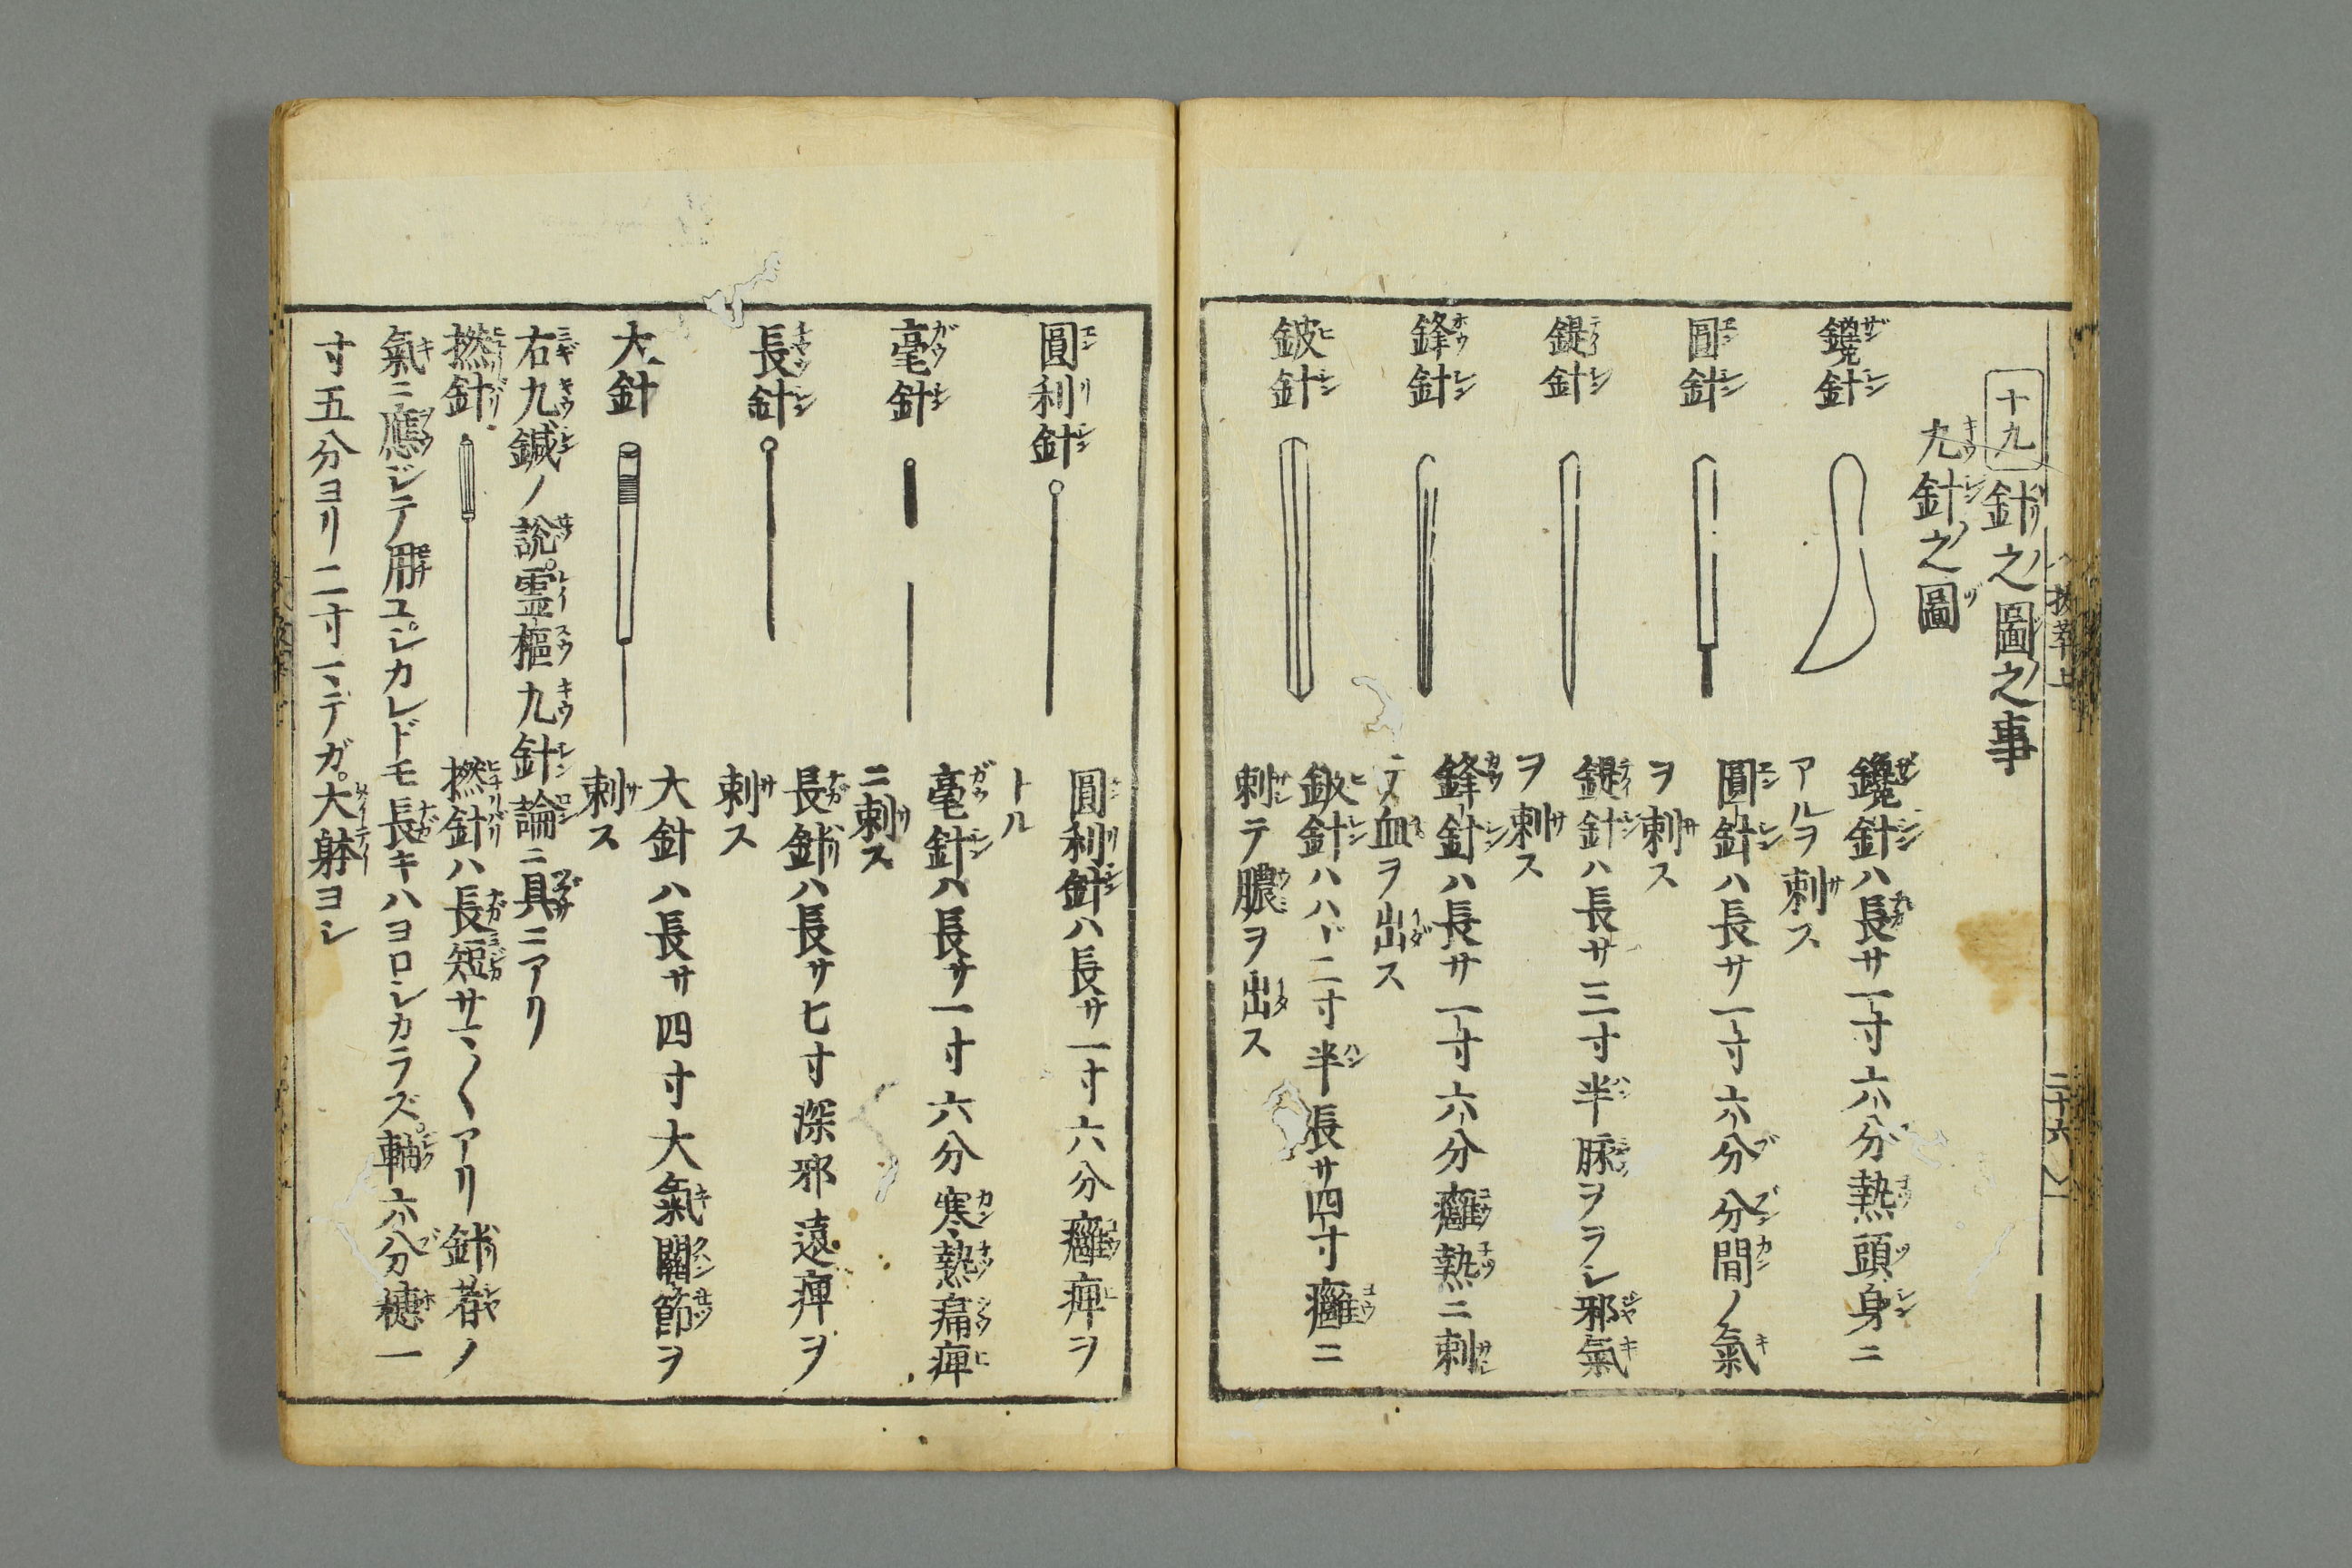 十九 針之圖之事
九針之圖
鑱針
鑱針ハ長サ一寸六分熱頭身ニ
アルヲ刺ス
圓針
圓針ハ長サ一寸六分分間ノ氣
ヲ刺ス
鍉針
鍉針ハ長サ三寸半脉ヲラシ邪氣
ヲ刺ス
鋒針
鋒針ハ長サ一寸六分癰熱ニ刺
テ血ヲ出ス
鈹針
鈹針ハハヾ二寸半長サ四寸癰ニ
刺テ膿ヲ出ス
拔萃上
二十六
圓利針
圓利針ハ長サ一寸六分癰痺ヲ
トル
毫針
毫針ハ長サ一寸六分寒熱痛痺
ニ刺ス
長針
長針ハ長サ七寸深邪遠痺ヲ
刺ス
大針
大針ハ長サ四寸大氣關節ヲ
刺ス
右九鍼ノ說。霊樞九針論ニ具ニアリ
撚針
撚針ハ長短サマ〱アリ針者ノ
氣ニ應ジテ用ユ。シカレドモ長キハヨロシカラズ。軸六分穂一
寸五分ヨリ二寸マデガ。大躰ヨシ